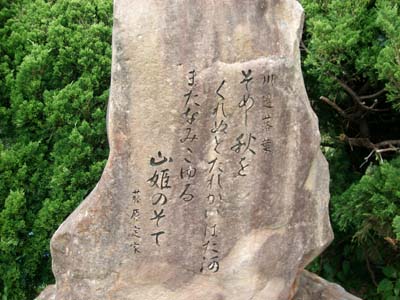 川辺落葉
そめし秋を
くれぬとたれかいはた河
またなみこゆる
山姫のそて
藤原定家